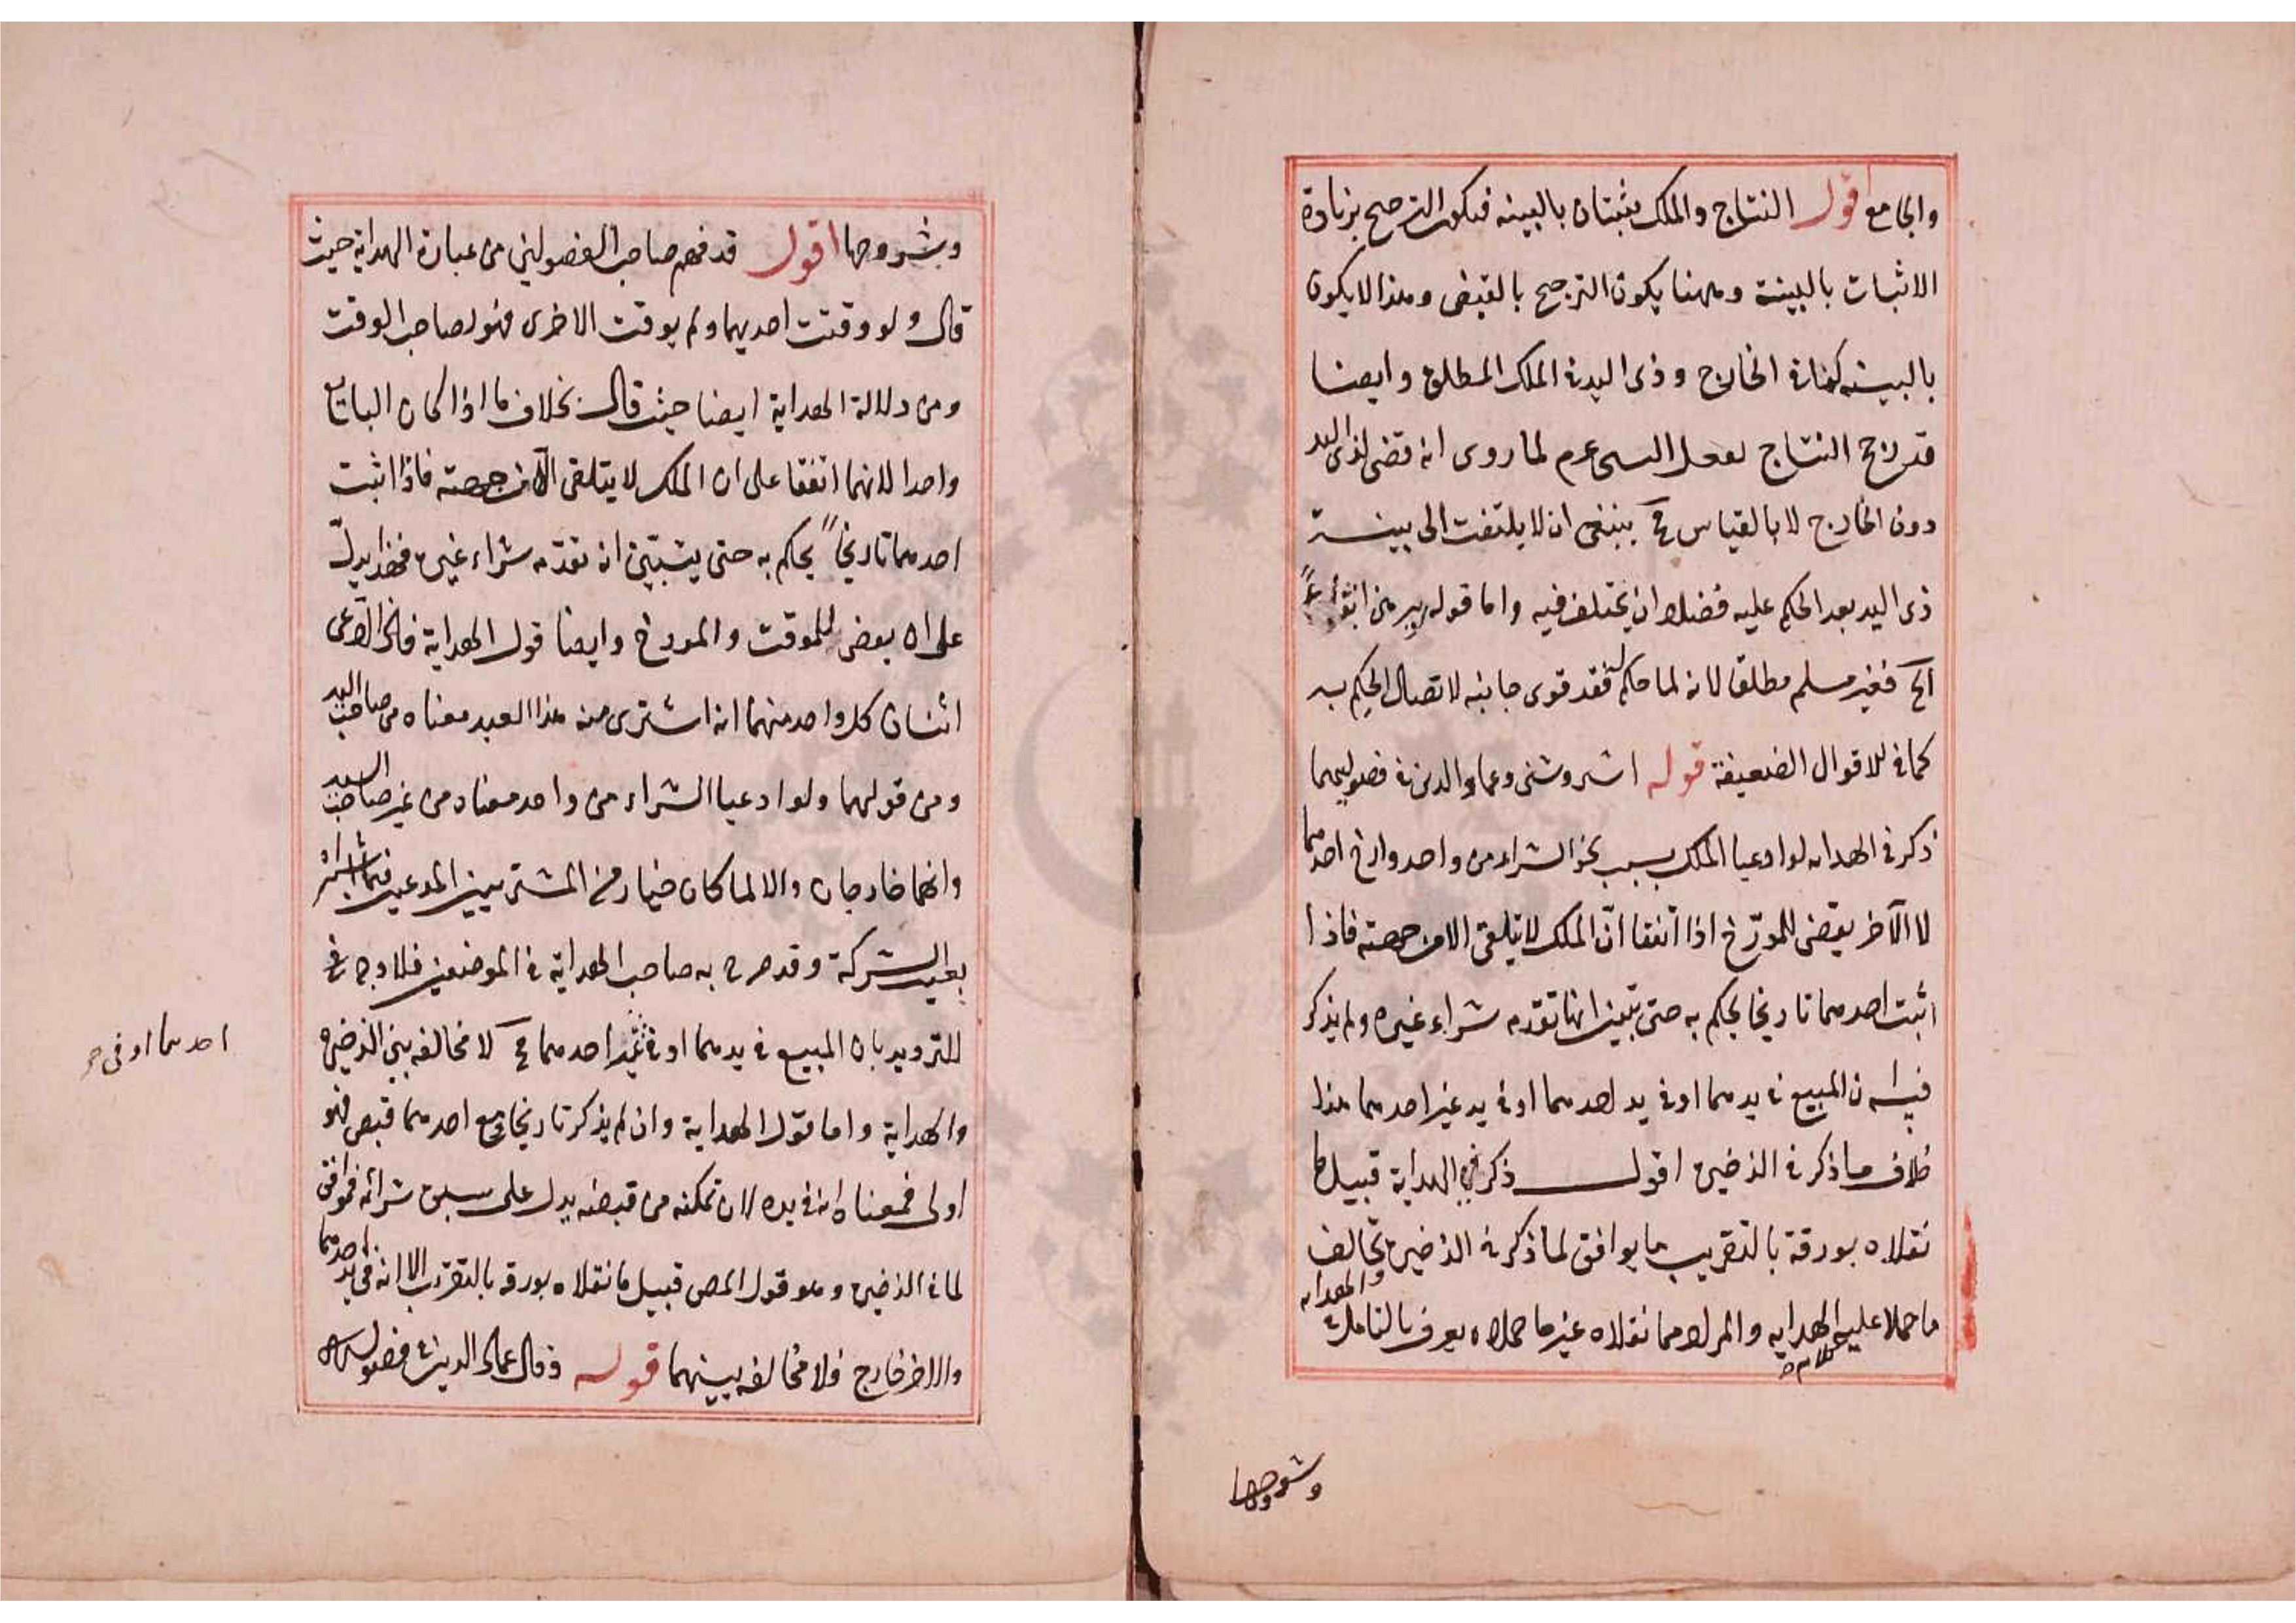 والجامع اقول النتاج والملك يثبتان بالبينه فيكون الترجيح بزيادة
الاثبات بالبينة وههنا يكون الترجيح بالقبض وهذا لا يكون
بالبينه كما فى الخارج وذى اليد فى الملك المطلق وايضا
قد رجح النتاج بفعل النبى عم لما روى انه قضى لذى اليد
دون الخارج لا بالقياس ح ينبغى ان لا يلتفت الى بينة
ذى اليد بعد الحكم عليه فضلا ان يختلف فيه واما قوله يبرهن
الخ فغير مسلم مطلقا لانه لما حكم فقد قوى جانبه لاتصال الحكم به
كما فى الاقوال الضعيفة قوله اشروشنى وعماد الدين فى فصوليهما
ذكر فى الهدايه لو ادعيا الملك بسبب نحو الشراء من واحد وارخ احدهما
لا الآخر يقضى للمورّخ اذا اتفقا انّ الملك لا يتلقى الا من جهته فاذا
اثبت احدهما تاريخا يحكم به حتى تبين انها تقدمه شراء غيره ولم يذكر
فيه ان المبيع فى يدهما او فى يد احدهما او فى يد غير احدهما هذا
خلاف ما ذكر فى الذخيره اقول ذكر فى الهداية قبيل ما
نقلاه بورقة بالتقريب ما يوافق لما ذكر فى الذخيره تخالف
ما حملا عليه كلامه الهدايه والمراد مما نقلاه غير ما حملاه يعرف بالتامل فى الهدايه
وشروحها
وشروحها اقول قد فهم صاحب الفصولين من عبارة الهداية حيث
قال ولو وقتت احديهما ولم يوقت الاخرى فهو لصاحب الوقت
ومن دلالة الهداية ايضا حيث قال بخلاف ما اذا كان البائع
واحدا لانهما اتفقا على ان الملك لا يتلقى الا من جهته فاذا اثبت
احدهما تاريخا يحكم به حتى يتبين انه تقدمه شراء غيره فهذا يدلّ
على ان بعض للموقت والمورخ وايضا قول الهداية فان ادعى
اثنان كل واحد منهما انه اشترى منه هذا العبد معناه من صاحب اليد
ومن قولهما ولو ادعيا الشراء من واحد معناه من غير صاحب اليد
وانهما خارجان والا لما كان خيار من المشتريين المدعيين
بعيب الشركة وقد صرح به صاحب الهداية فى الموضعين فلا وجه
للترديد بان المبيع فى يدهما او فى يد احدهما ح لا مخالفه بين الذخيره
والهداية واما قول الهداية وان لم يذكر تاريخا ومع احدهما قبض فهو
اولى فمعناه انه فى يده لان تمكنه من قبضه يدل على سبق شرائه فوافق
لما فى الذخيره وهو قول المص قبيل ما نقلاه بورقه بالتقريب الا انه فى يد احدهما
والاخر خارج فلا مخالفه بينهما قوله وقال عماد الدين فى فصوله
احدهما او فى